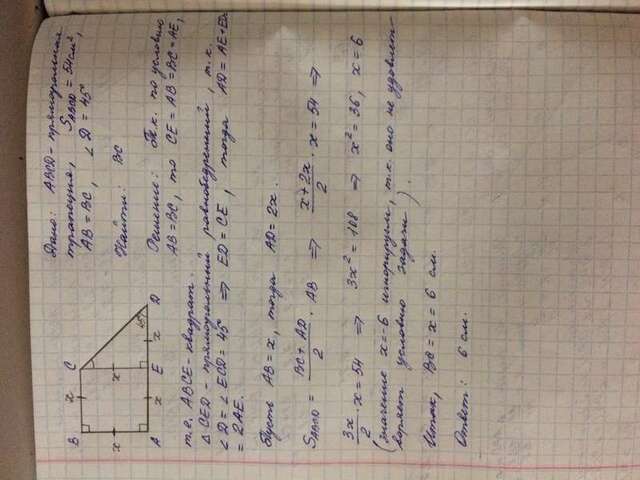 Дано: ABCD - прямоугольная
трапеция, S_ABCD = 54 см²,
AB = BC, ∠D = 45°
Найти: BC
Решение: Т.к. по условию
AB = BC, то CE = AB = BC = AE,
B
C
x
x
x
x
x
45°
A
E
D
т.е. ABCE - квадрат.
△CED - прямоугольный равнобедренный, т.к.
∠D = ∠ECD = 45° ⇒ ED = CE, тогда AD = AE + ED
= 2AE.
Пусть AB = x, тогда AD = 2x.
S_ABCD = (BC + AD)/2 · AB ⇒ (x + 2x)/2 · x = 54 ⇒
3x/2 · x = 54 ⇒ 3x² = 108 ⇒ x² = 36, x = 6
(значение x = -6 игнорируем, т.к. оно не удовлет-
воряет условию задачи).
Итак, BC = x = 6 см.
Ответ: 6 см.